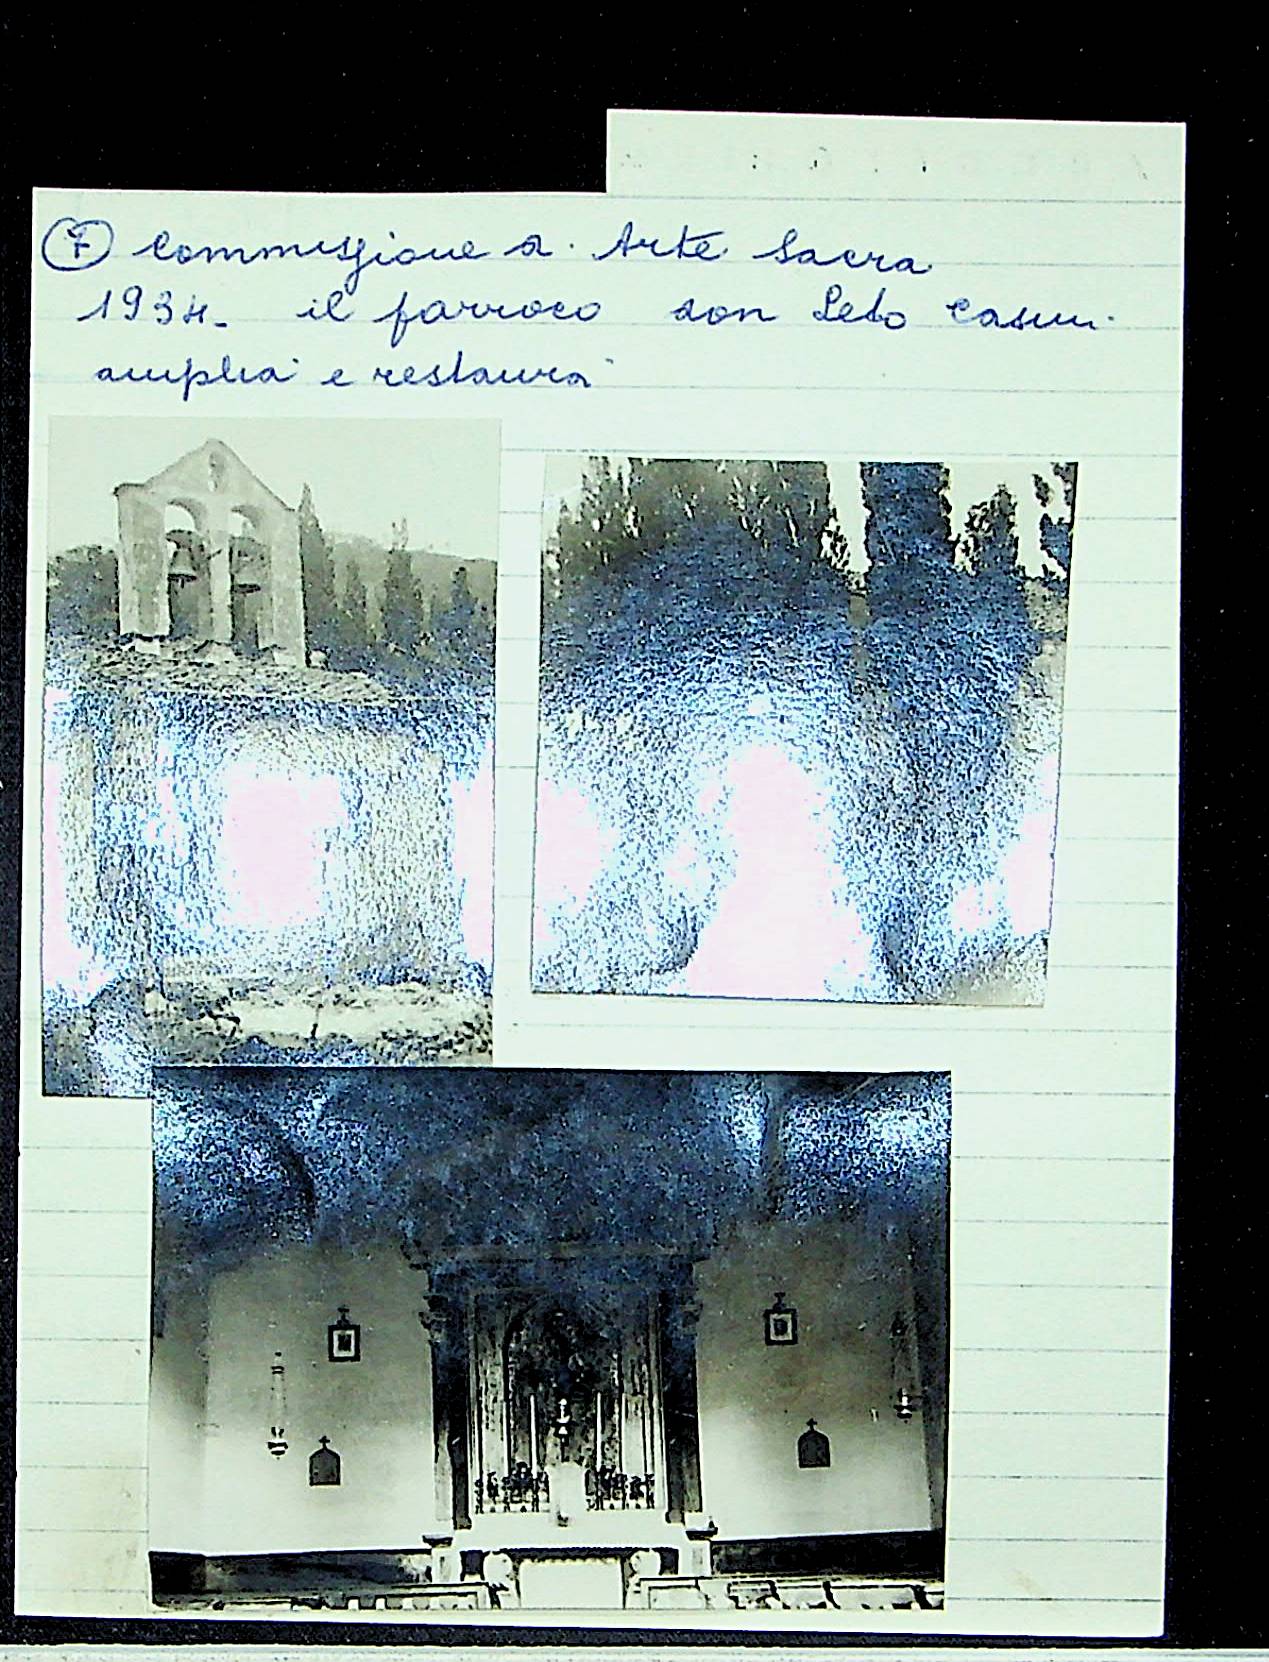 7 Commissione d. Arte Sacra
1934. il parroco don Leto Casini
amplia e restaura